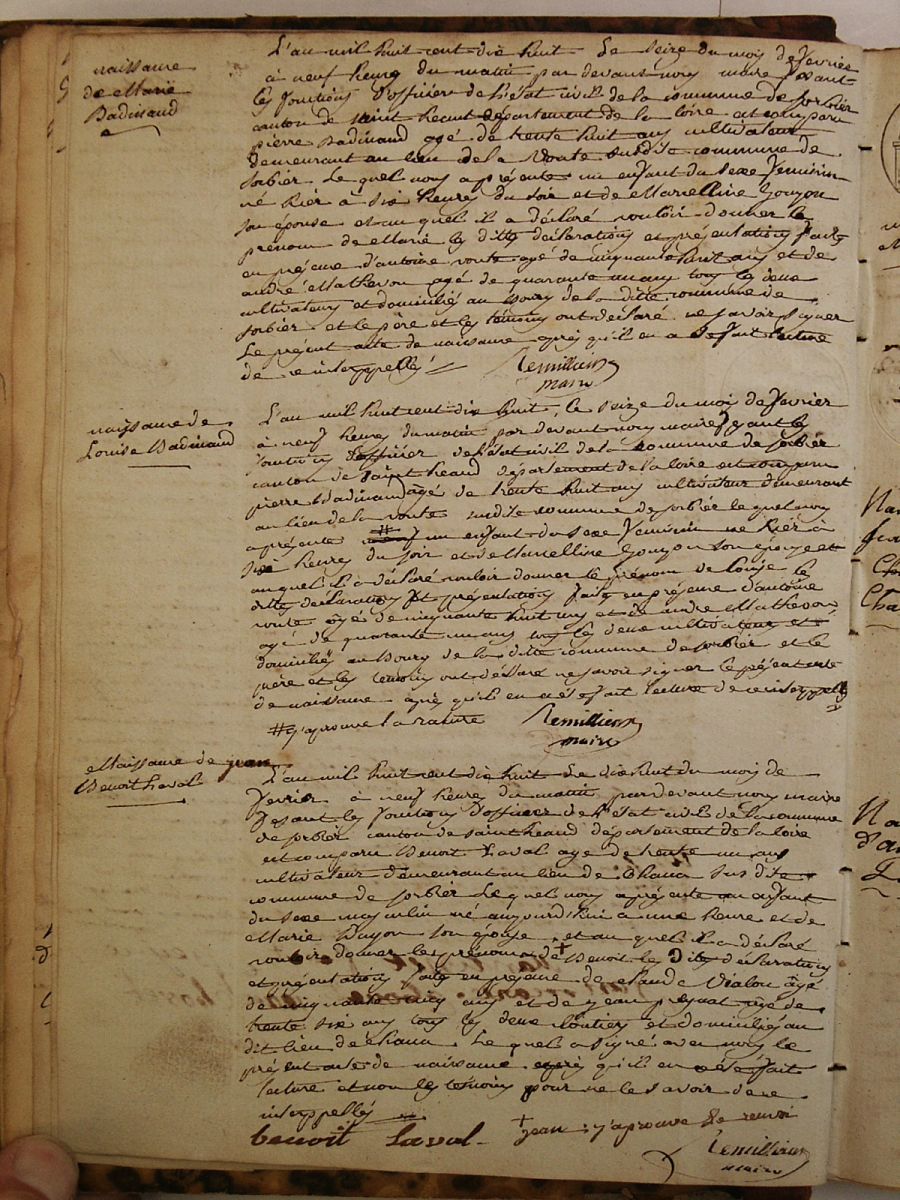 naissance
de Marie
Badinaud
L'an mil huit cent dix huit Le seize du mois de fevrier
à neuf heures du matin par devant nous maire fesant
les fonctions d'officier de l'état civil de la commune de sorbier
canton de saint heand département de la loire est comparu
pierre Badinaud agé de trente huit ans cultivateur
demeurant au lieu de la Voute susdite commune de
sorbier Le quel nous a présenté un enfant du sexe feminin
né hier à six heures du soir et de Marcelline Gouyon
son épouse et au quel il a déclaré vouloir donner le
prénom de Marie les dittes déclarations et présentations faites
en présence d'antoine voute agé de cinquante huit ans et de
andré Mathevon agé de quarante un ans tous les deux
cultivateurs et domiciliés au Bourg de la ditte commune de
sorbier et le père et les témoins ont déclaré ne savoir signer
Le présent acte de naissance après qu'il en a été fait lecture
de ce interppellés
Remillieux
maire
naissance de
Louise Badinaud
L'an mil huit cent dix huit, le seize du mois de fevrier
à neuf heures du matin par devant nous maire fesant les
fonctions d'officier de l'état civil de la commune de sorbier
canton de saint heand département de la loire est comparu
pierre Badinaud agé de trente huit ans cultivateur demeurant
au lieu de la voute susdite commune de sorbier le quel nous
a présenté # un enfant du sexe feminin né hier à
six heures du soir et de Marcelline Gouyon son épouse et
au quel il a déclaré vouloir donner le prénom de Louise les
dittes déclarations et présentations faites en présence d'antoine
voute agé de cinquante huit ans et de andré Mathevon
agé de quarante un ans tous les deux cultivateurs et
domiciliés au Bourg de la ditte commune de sorbier et le
père et les témoins ont déclaré ne savoir signer le présent acte
de naissance après qu'il en a été fait lecture de ce interppellés
# j'aprouve la rature
Remillieux
maire
Naissance de jean
Benoit Laval
L'an mil huit cent dix huit Le dix huit du mois de
fevrier à neuf heures du matin par devant nous maire
fesant les fonctions d'officier de l'état civil de la commune
de sorbier canton de saint heand département de la loire
est comparu Benoit Laval agé de trente un ans
cultivateur demeurant au lieu de Chana sus dite
commune de sorbier Le quel nous a présenté un enfant
du sexe masculin né aujourd'hui a une heure et de
Marie Guyon son épouse, et au quel il a déclaré
vouloir donner les prénoms de + Benoit les dites déclarations
et présentations faites en présence de claude Vialou âgé
de cinquante cinq ans et de jean agé de
trente six ans tous les deux cloutiers et domiciliés au
dit lieu de chana. Le quel a signé avec nous le
présent acte de naissance après qu'il en a été fait
lecture et non les témoins pour ne le savoir de ce
interppellés
+ jean : j'aprouve le renvoi
benoit Laval
Remillieux
maire